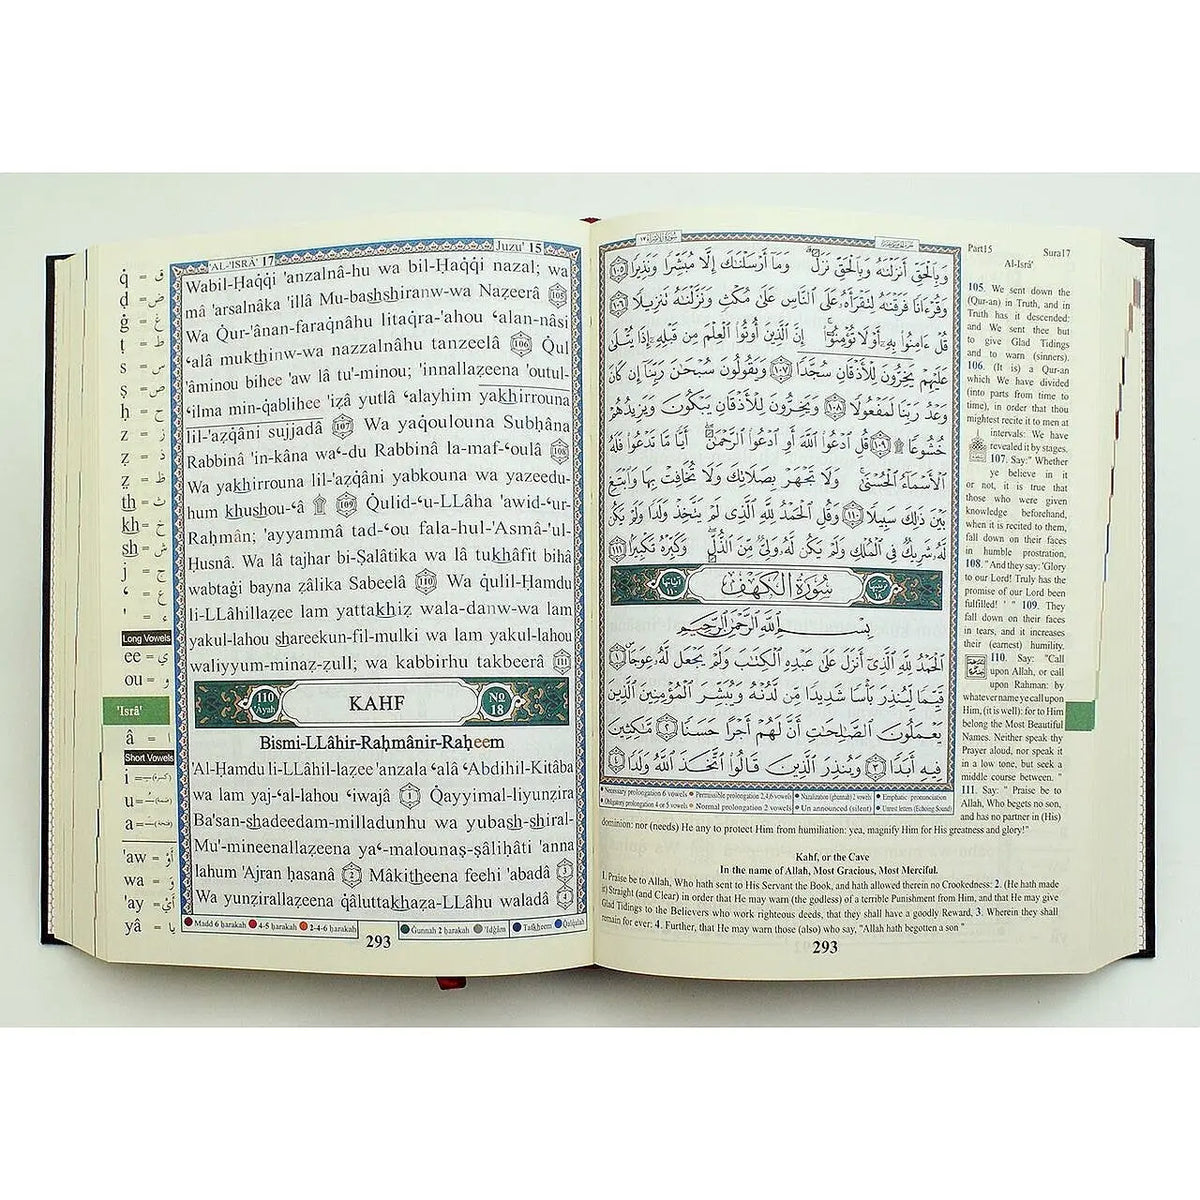 'AL-'ISRÂ' 17
Juzu' 15
Wabil-Ḥaqqi 'anzalnâ-hu wa bil-Ḥaqqi nazal; wa
mâ 'arsalnâka 'illâ Mu-bashshiranw-wa Nazeerâ 105
Wa Qur-'ânan-faraqnâhu litaqra-'ahou ʻalan-nâsi
ʻalâ mukthinw-wa nazzalnâhu tanzeelâ 106 Qul
'âminou bihee 'aw lâ tu'-minou; 'innallaẓeena 'outul-
ʻilma min-qablihee 'iẓâ yutlâ ʻalayhim yakhirrouna
lil-'aẓqâni sujjadâ 107 Wa yaqoulouna Subḥâna
Rabbinâ 'in-kâna waʻ-du Rabbinâ la-maf-ʻoulâ 108
Wa yakhirrouna lil-'aẓqâni yabkouna wa yazeedu-
hum khushou-ʻâ ۩ 109 Qulid-ʻu-LLâha 'awid-ʻur-
Raḥmân; 'ayyammâ tad-ʻou fala-hul-'Asmâ-'ul-
Ḥusnâ. Wa lâ tajhar bi-Ṣalâtika wa lâ tukhâfit bihâ
wabtaġi bayna ẓâlika Sabeelâ 110 Wa qulil-Ḥamdu
li-LLâhillaẓee lam yattakhiẓ wala-danw-wa lam
yakul-lahou shareekun-fil-mulki wa lam yakul-lahou
waliyyum-minaẓ-ẓull; wa kabbirhu takbeerâ 111
110 'Ayah KAHF No 18
Bismi-LLâhir-Raḥmânir-Raḥeem
'Al-Ḥamdu li-LLâhil-laẓee 'anzala ʻalâ ʻAbdihil-Kitâba
wa lam yaj-ʻal-lahou ʻiwajâ 1 Qayyimal-liyunẓira
Ba'san-shadeedam-milladunhu wa yubash-shiral-
Mu'-mineenallaẓeena yaʻ-malounaṣ-ṣâliḥâti 'anna
lahum 'Ajran ḥasanâ 2 Mâkitheena feehi 'abadâ 3
Wa yunẓirallaẓeena qâluttakhaẓa-LLâhu waladâ 4
Madd 6 ḥarakah 4-5 ḥarakah 2-4-6 ḥarakah Ġunnah 2 ḥarakah 'Idġâm Tafkheem Qalqalah
293
q̇ = ق
ḍ = ض
ġ = غ
ṭ = ط
s = س
ṣ = ص
ḥ = ح
z = ز
ẓ = ذ
ẓ = ظ
th = ث
kh = خ
sh = ش
j = ج
ʻ = ع
' = ء
Long Vowels
ee = ي
ou = و
'Isrâ'
â = ا
Short Vowels
i =
u =
a =
'aw = أَوْ
wa = وَ
'ay = أَيْ
yâ = يا
وَبِالْحَقِّ أَنزَلْنَاهُ وَبِالْحَقِّ نَزَلَ وَمَا أَرْسَلْنَاكَ إِلَّا مُبَشِّرًا وَنَذِيرًا ١٠٥
وَقُرْءَانًا فَرَقْنَاهُ لِتَقْرَأَهُ عَلَى النَّاسِ عَلَى مُكْثٍ وَنَزَّلْنَاهُ تَنزِيلًا ١٠٦
قُلْ ءَامِنُوا بِهِ أَوْ لَا تُؤْمِنُوا إِنَّ الَّذِينَ أُوتُوا الْعِلْمَ مِن قَبْلِهِ إِذَا يُتْلَى
عَلَيْهِمْ يَخِرُّونَ لِلْأَذْقَانِ سُجَّدًا ١٠٧ وَيَقُولُونَ سُبْحَانَ رَبِّنَا إِن كَانَ
وَعْدُ رَبِّنَا لَمَفْعُولًا ١٠٨ وَيَخِرُّونَ لِلْأَذْقَانِ يَبْكُونَ وَيَزِيدُهُمْ
خُشُوعًا ۩ ١٠٩ قُلِ ادْعُوا اللَّهَ أَوِ ادْعُوا الرَّحْمَنَ أَيًّا مَّا تَدْعُوا فَلَهُ
الْأَسْمَاءُ الْحُسْنَى وَلَا تَجْهَرْ بِصَلَاتِكَ وَلَا تُخَافِتْ بِهَا وَابْتَغِ
بَيْنَ ذَلِكَ سَبِيلًا ١١٠ وَقُلِ الْحَمْدُ لِلَّهِ الَّذِي لَمْ يَتَّخِذْ وَلَدًا وَلَمْ يَكُن
لَّهُ شَرِيكٌ فِي الْمُلْكِ وَلَمْ يَكُن لَّهُ وَلِيٌّ مِّنَ الذُّلِّ وَكَبِّرْهُ تَكْبِيرًا ١١١
سُورَةُ الْكَهْفِ
بِسْمِ اللَّهِ الرَّحْمَنِ الرَّحِيمِ
الْحَمْدُ لِلَّهِ الَّذِي أَنزَلَ عَلَى عَبْدِهِ الْكِتَابَ وَلَمْ يَجْعَل لَّهُ عِوَجًا ١
قَيِّمًا لِّيُنذِرَ بَأْسًا شَدِيدًا مِّن لَّدُنْهُ وَيُبَشِّرَ الْمُؤْمِنِينَ الَّذِينَ
يَعْمَلُونَ الصَّالِحَاتِ أَنَّ لَهُمْ أَجْرًا حَسَنًا ٢ مَّاكِثِينَ
فِيهِ أَبَدًا ٣ وَيُنذِرَ الَّذِينَ قَالُوا اتَّخَذَ اللَّهُ وَلَدًا ٤
Necessary prolongation 6 vowels Permissible prolongation 2,4,6 vowels Nazalization (ghunnah) 2 vowels Emphatic pronunciation
Obligatory prolongation 4 or 5 vowels Normal prolongation 2 vowels Un announced (silent) Unrest letters (Echoing Sound)
Part15 Sura17
Al-Isrâ'
105. We sent down the
(Qur-an) in Truth, and in
Truth has it descended:
and We sent thee but
to give Glad Tidings
and to warn (sinners).
106. (It is) a Qur-an
which We have divided
(into parts from time to
time), in order that thou
mightest recite it to men at
intervals: We have
revealed it by stages.
107. Say:" Whether
ye believe in it
or not, it is true that
those who were given
knowledge beforehand,
when it is recited to them,
fall down on their faces
in humble prostration,
108. " And they say: 'Glory
to our Lord! Truly has the
promise of our Lord been
fulfilled! ' " 109. They
fall down on their faces
in tears, and it increases
their (earnest) humility.
110. Say: "Call
upon Allah, or call
upon Rahman: by
whatever name ye call upon
Him, (it is well): for to Him
belong the Most Beautiful
Names. Neither speak thy
Prayer aloud, nor speak it
in a low tone, but seek a
middle course between. "
111. Say: " Praise be to
Allah, Who begets no son,
and has no partner in (His)
dominion: nor (needs) He any to protect Him from humiliation: yea, magnify Him for His greatness and glory!"
Kahf, or the Cave
In the name of Allah, Most Gracious, Most Merciful.
1. Praise be to Allah, Who hath sent to His Servant the Book, and hath allowed therein no Crookedness: 2. (He hath made
it) Straight (and Clear) in order that He may warn (the godless) of a terrible Punishment from Him, and that He may give
Glad Tidings to the Believers who work righteous deeds, that they shall have a goodly Reward, 3. Wherein they shall
remain for ever: 4. Further, that He may warn those (also) who say, "Allah hath begotten a son "
293